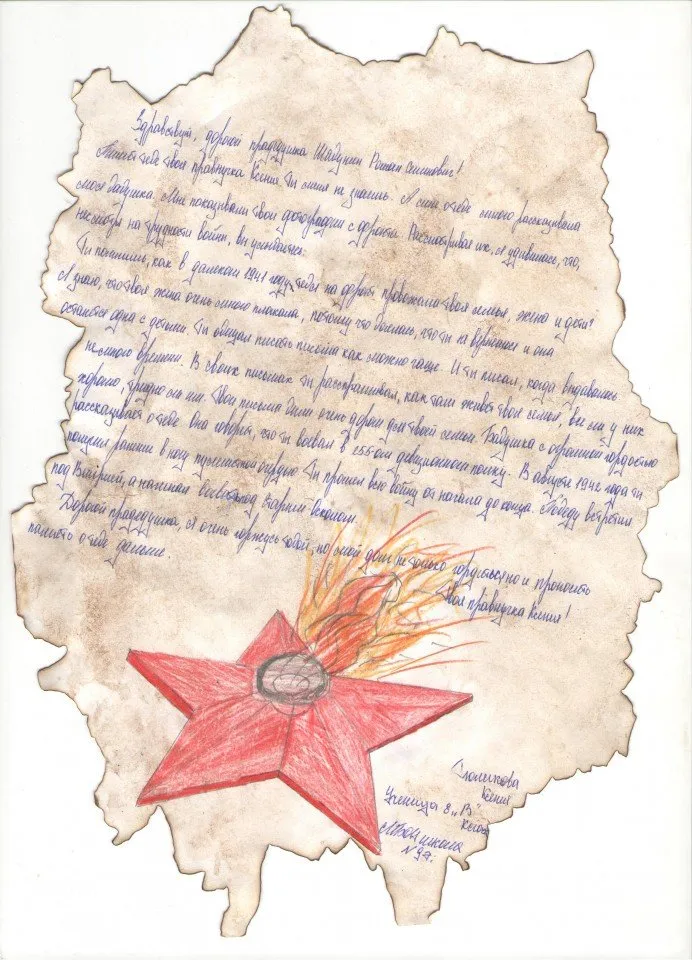 Здравствуй, дорогой прадедушка Роман Семинович!
Пишет тебе твоя правнучка Ксения. Ты меня не знаешь. А мне о тебе много рассказывала
моя бабушка. Мне показывали твои фотографии с фронта. Рассматривая их, я удивилась, что,
несмотря на трудности войны, вы улыбаетесь.
Ты помнишь, как в далеком 1941 году тебя на фронт провожали твоя семья, жена и дети?
Я знаю, что твоя жена очень много плакала, потому что боялась, что ты не вернешься и она
останется одна с детьми. Ты обещал писать письма как можно чаще. И ты писал, когда выдавалось
немного времени. В своих письмах ты расспрашивал, как там живёт твоя семья, все ли у них
хорошо, трудно ли им. Твои письма были очень дороги для твоей семьи. Бабушка с огромной гордостью
рассказывает о тебе. Она говорит, что ты воевал в 255-ом полку. В августе 1942 года ты
получил ранение в ногу. Ты прошел всю войну от начала до конца. Победу встретил
под а начинал под Старым Осколом.
Дорогой прадедушка, я очень горжусь тобой, но мой долг не только гордиться но и проносить
память о тебе дальше.
Твоя правнучка Ксения!
Ксения
Ученица 8 „В"
школа